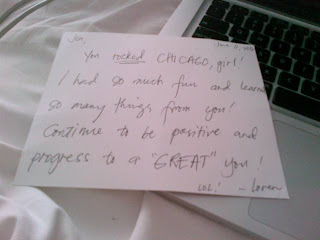 Jen,
You rocked CHICAGO, girl!
I had so much fun and learned
so many things from you!
Continue to be positive and
progress to a "GREAT" you!
LOL! - Loren